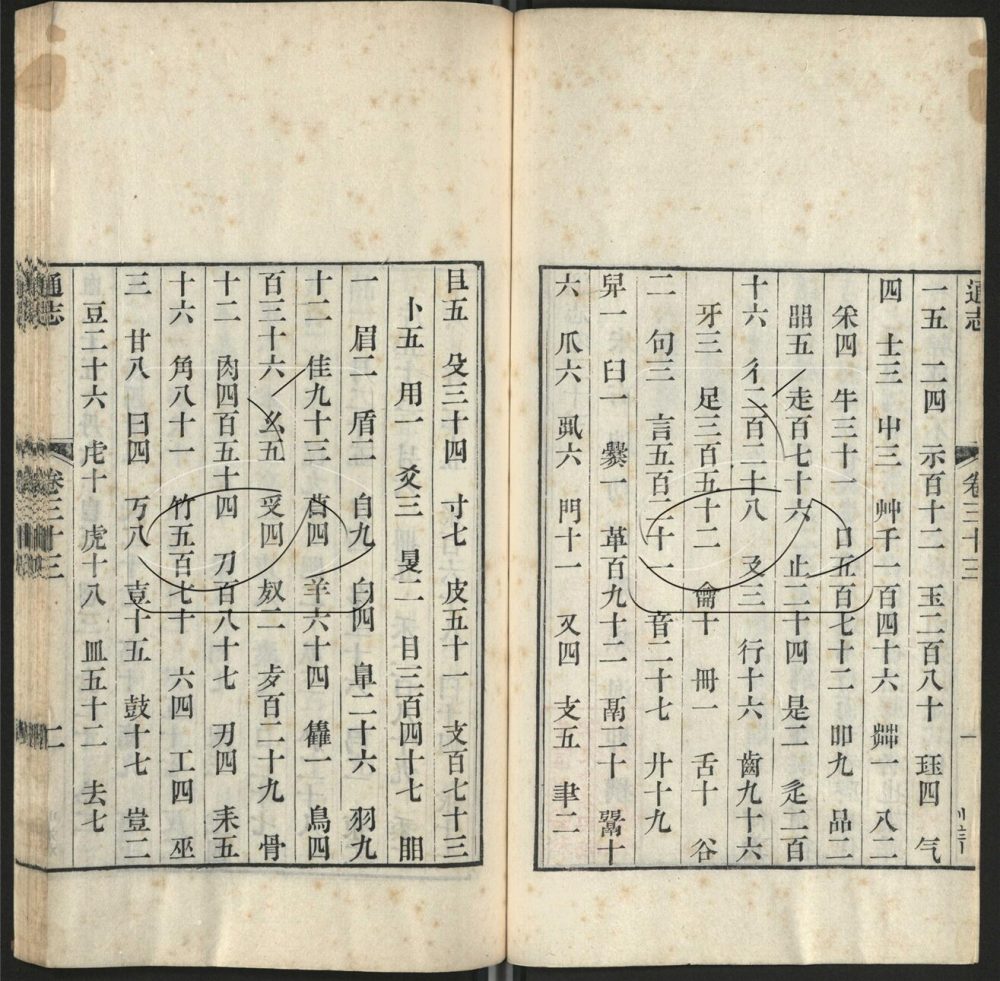 通志
卷三十三
一
一五 二四 示百十二 玉二百八十 玨四 气
四 士三 屮三 艸千一百四十六 茻一 八二
釆四 牛三十一 口五百七十二 吅九 品二
㗊五 走百七十六 止二十四 是二 辵二百
十六 彳二百二十八 廴三 行十六 齒九十六
牙三 足三百五十二 龠十 冊一 舌十 谷
二 句三 言五百二十一 音二十七 廾十九
舁一 𦥑一 爨一 革百九十二 鬲二十 䰜十
六 爪六 丮六 鬥十一 又四 支五 聿二
𦣞五 殳三十四 寸七 皮五十一 支百七十三
卜五 用一 爻三 㫗一 目三百四十七 䀠
一 眉二 盾二 自九 白四 皐二十六 羽九
十二 隹九十三 酋四 羊六十四 雥一 鳥四
百三十六 幺五 𠬪四 𣦼二 歺百二十九 骨
十二 肉四百五十四 刀百八十七 刃四 耒五
十六 角八十一 竹五百七十 六四 工四 巫
三 甘八 曰四 丂八 壴十五 鼓十七 豈二
豆二十六 虍十 虎十八 皿五十二 去七
通志
卷三十三
二